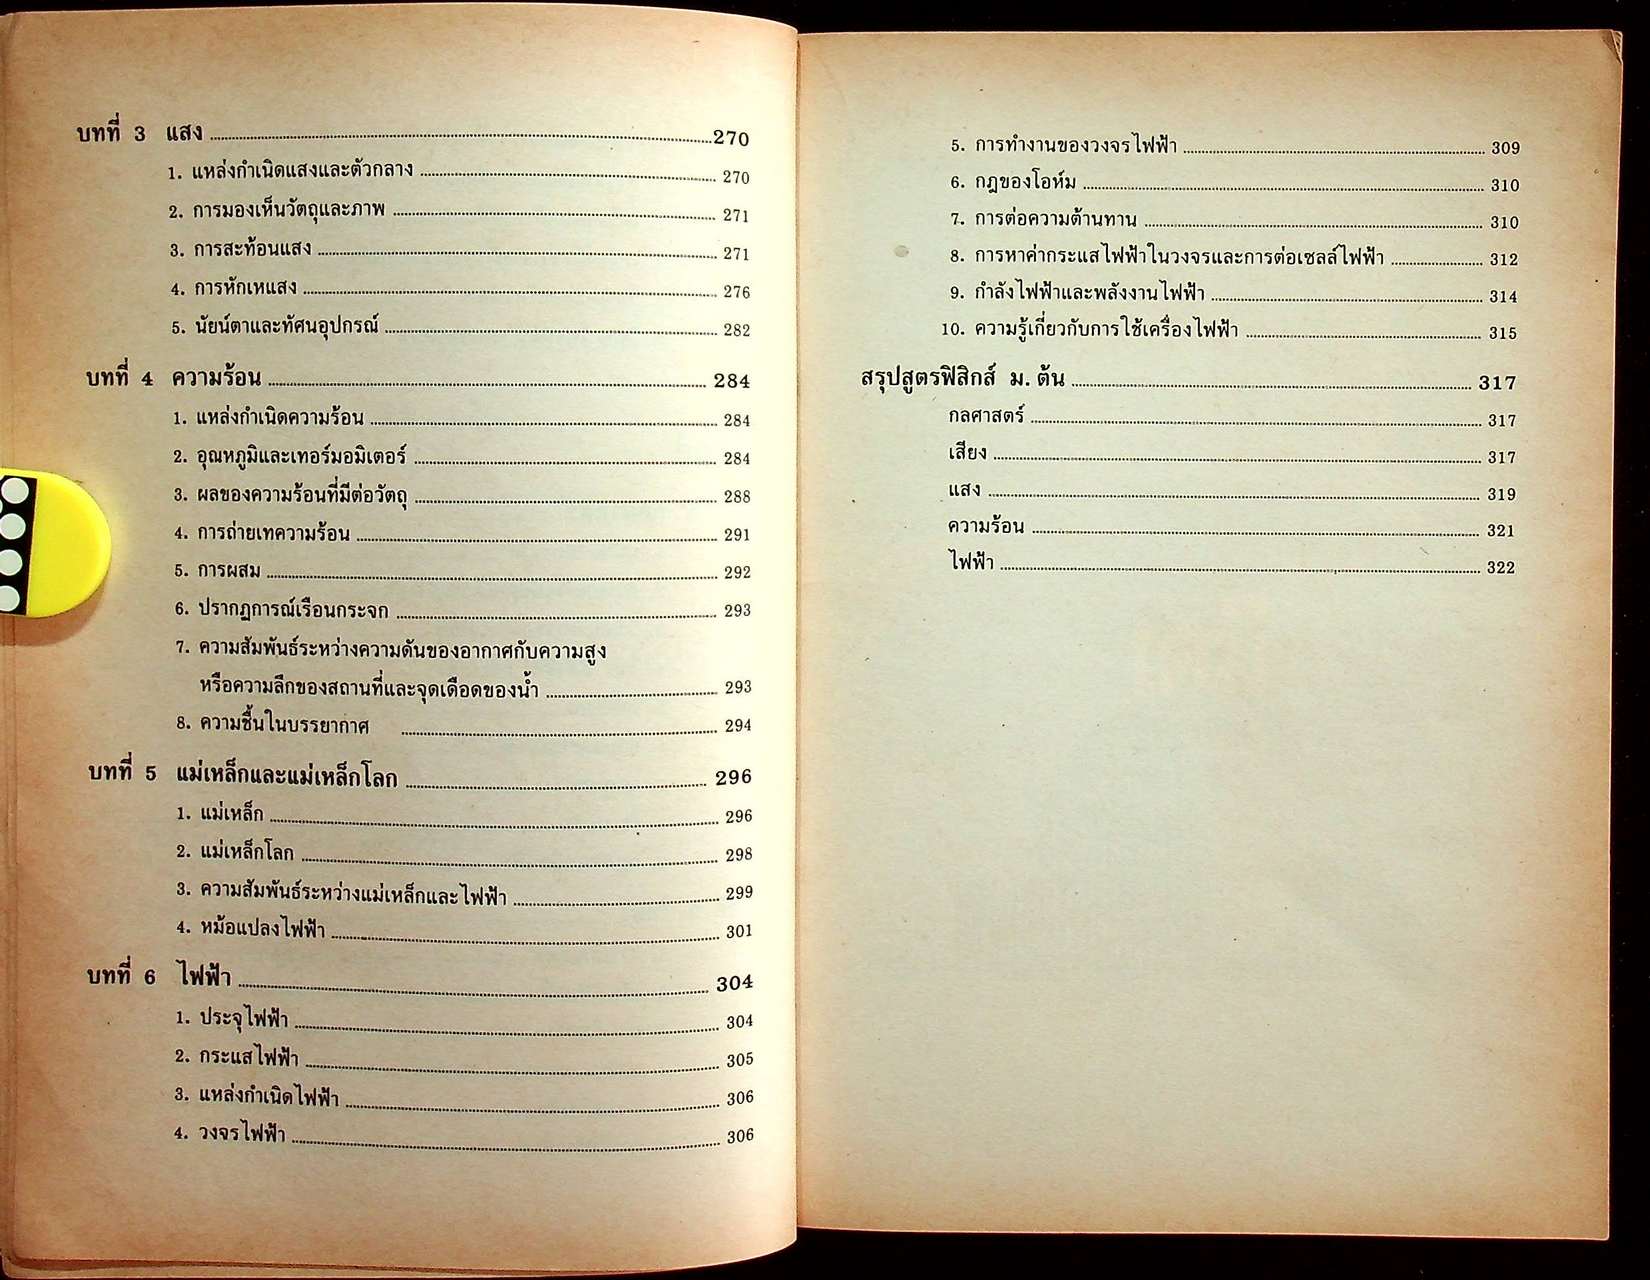 บทที่ 3 แสง ........ 270
1. แหล่งกำเนิดแสงและตัวกลาง ........ 270
2. การมองเห็นวัตถุและภาพ ........ 271
3. การสะท้อนแสง ........ 271
4. การหักเหแสง ........ 276
5. นัยน์ตาและทัศนอุปกรณ์ ........ 282
บทที่ 4 ความร้อน ........ 284
1. แหล่งกำเนิดความร้อน ........ 284
2. อุณหภูมิและเทอร์มอมิเตอร์ ........ 284
3. ผลของความร้อนที่มีต่อวัตถุ ........ 288
4. การถ่ายเทความร้อน ........ 291
5. การผสม ........ 292
6. ปรากฏการณ์เรือนกระจก ........ 293
7. ความสัมพันธ์ระหว่างความดันของอากาศกับความสูง
หรือความลึกของสถานที่และจุดเดือดของน้ำ ........ 293
8. ความชื้นในบรรยากาศ ........ 294
บทที่ 5 แม่เหล็กและแม่เหล็กโลก ........ 296
1. แม่เหล็ก ........ 296
2. แม่เหล็กโลก ........ 298
3. ความสัมพันธ์ระหว่างแม่เหล็กและไฟฟ้า ........ 299
4. หม้อแปลงไฟฟ้า ........ 301
บทที่ 6 ไฟฟ้า ........ 304
1. ประจุไฟฟ้า ........ 304
2. กระแสไฟฟ้า ........ 305
3. แหล่งกำเนิดไฟฟ้า ........ 306
4. วงจรไฟฟ้า ........ 306
5. การทำงานของวงจรไฟฟ้า ........ 309
6. กฎของโอห์ม ........ 310
7. การต่อความต้านทาน ........ 310
8. การหาค่ากระแสไฟฟ้าในวงจรและการต่อเซลล์ไฟฟ้า ........ 312
9. กำลังไฟฟ้าและพลังงานไฟฟ้า ........ 314
10. ความรู้เกี่ยวกับการใช้เครื่องไฟฟ้า ........ 315
สรุปสูตรฟิสิกส์ ม. ต้น ........ 317
กลศาสตร์ ........ 317
เสียง ........ 317
แสง ........ 319
ความร้อน ........ 321
ไฟฟ้า ........ 322